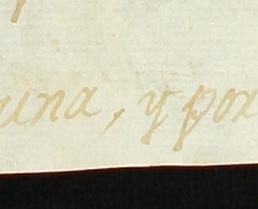 una, y por